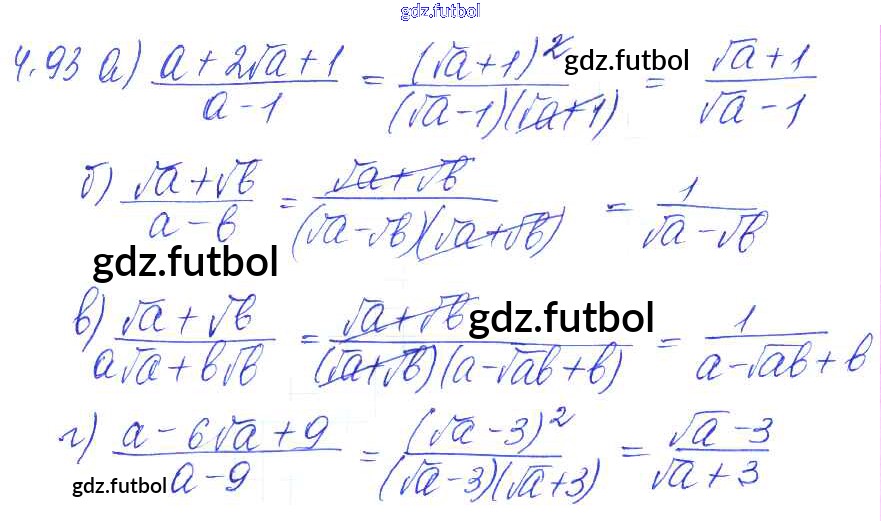 gdz.futbol
4.93 а) (a + 2√a + 1)/(a - 1) = (√a + 1)²/((√a - 1)(√a + 1)) gdz.futbol = (√a + 1)/(√a - 1)
б) (√a + √b)/(a - b) = (√a + √b)/((√a - √b)(√a + √b)) = 1/(√a - √b)
gdz.futbol
в) (√a + √b)/(a√a + b√b) = (√a + √b)/((√a + √b)(a - √ab + b)) gdz.futbol = 1/(a - √ab + b)
г) (a - 6√a + 9)/(a - 9) = (√a - 3)²/((√a - 3)(√a + 3)) = (√a - 3)/(√a + 3)
gdz.futbol